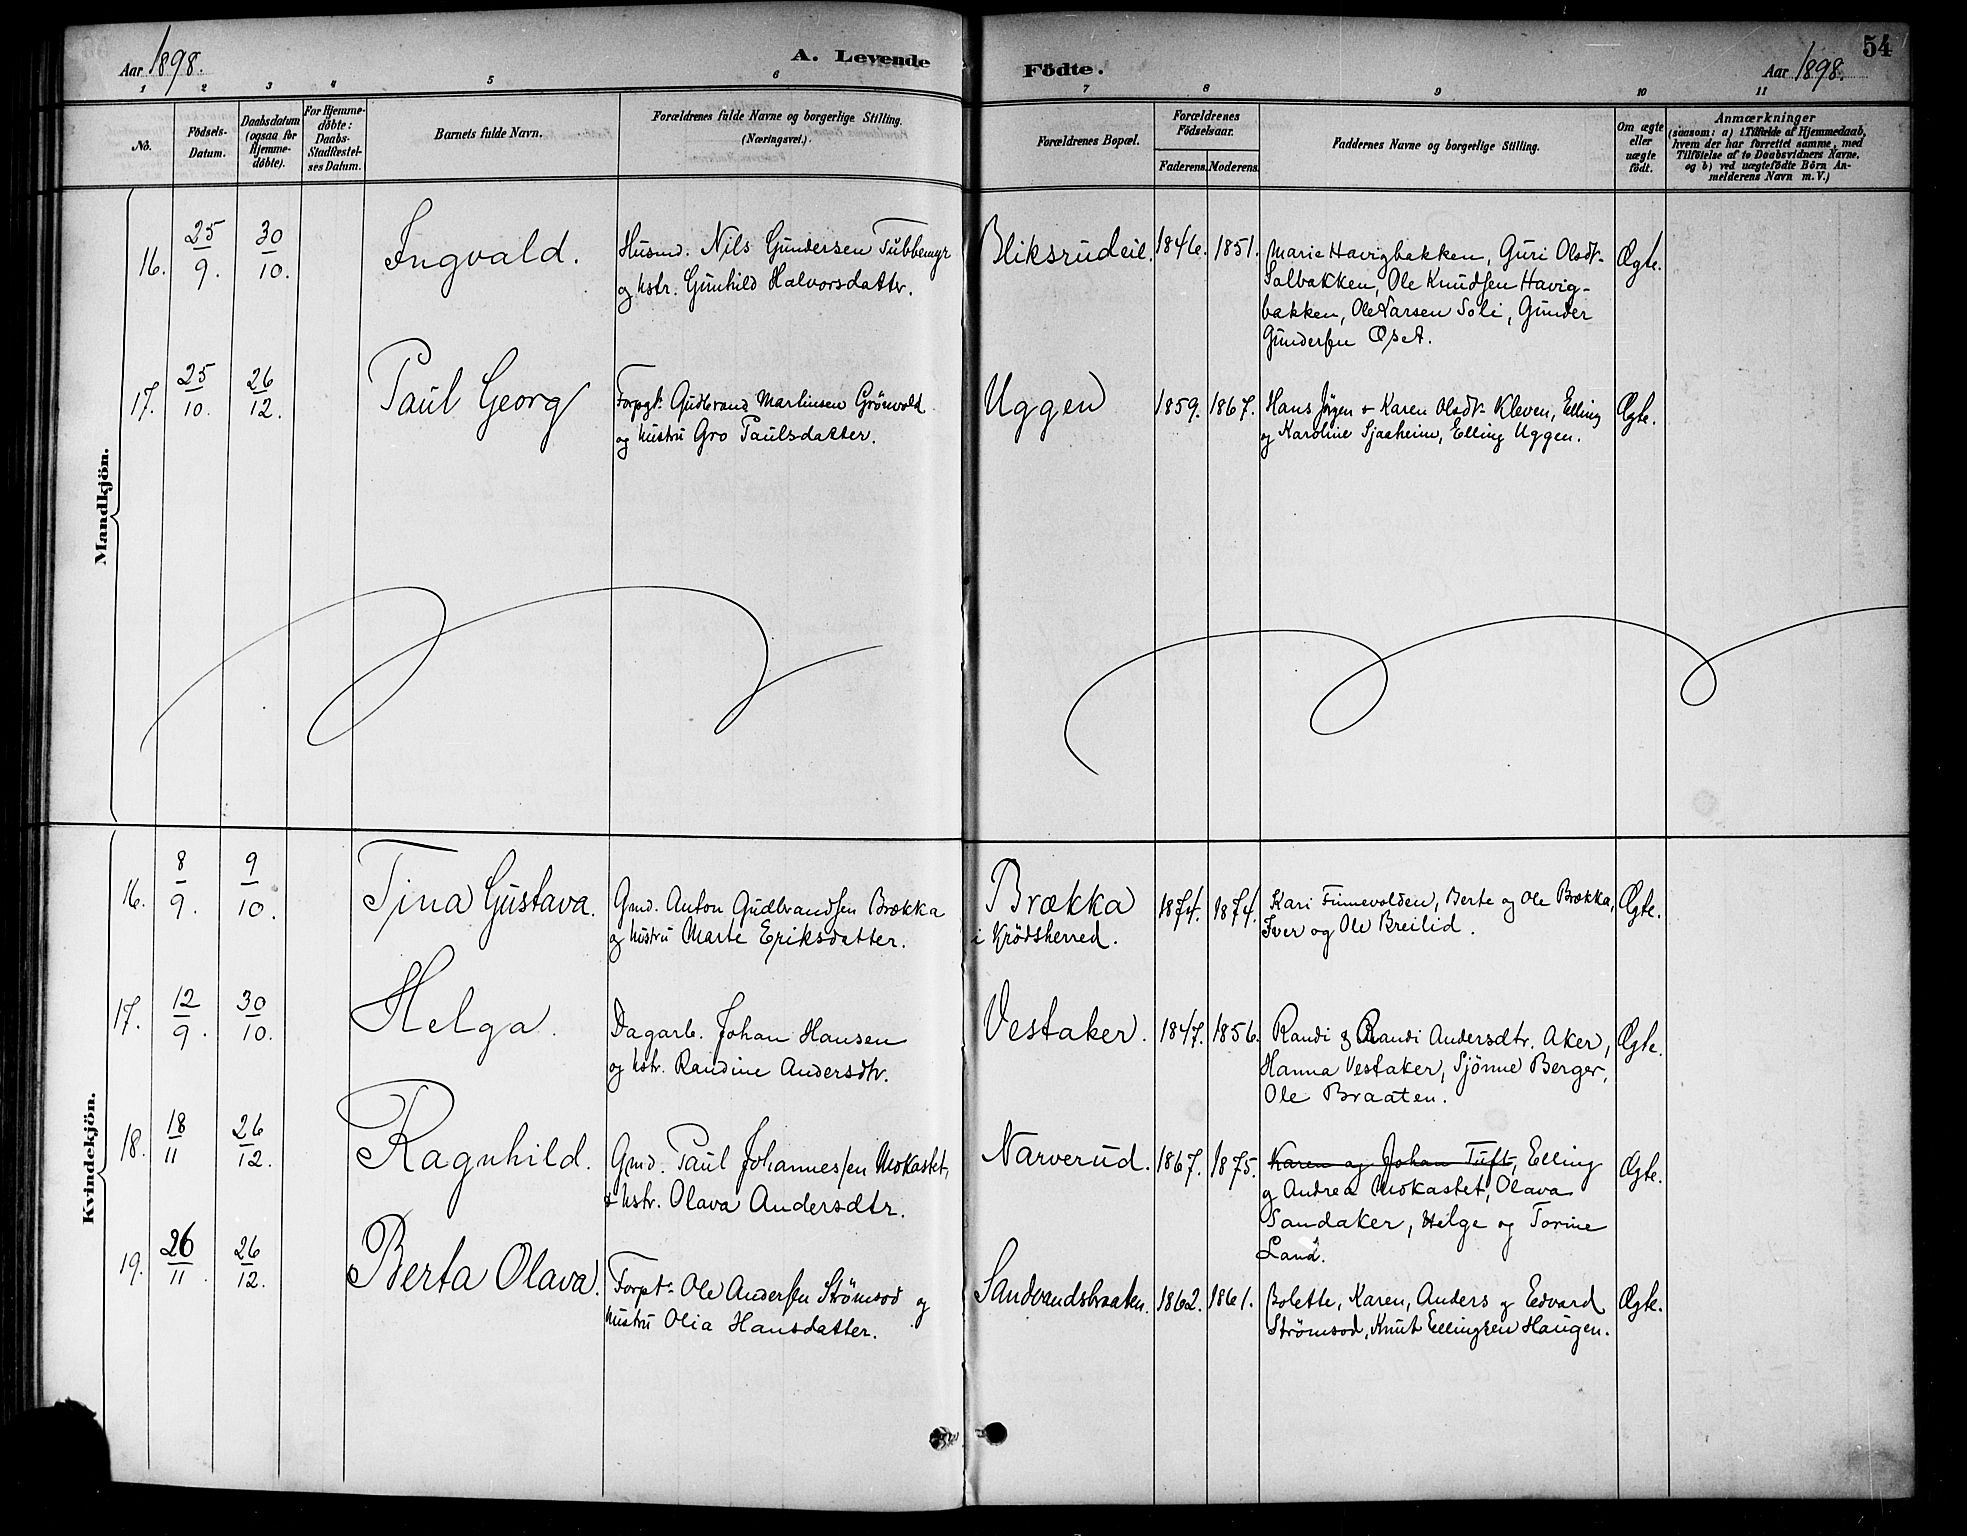 Aar 1898.
A. Levende
Födte.
Aar 1898.
54
1 2 3 4 5 6 7 8 9 10 11
No.
Födsels-
Datum.
Daabsdatum
(ogsaa for
Hjemme-
döbte).
For Hjemme-
döbte:
Daabs-
Stadfæstel-
ses Datum.
Barnets fulde Navn.
Forældrenes fulde Navne og borgerlige Stilling.
(Næringsvei.)
Forældrenes Bopæl.
Forældrenes
Födselsaar.
Faderens. Moderens.
Faddernes Navne og borgerlige Stilling.
Om ægte
eller
uægte
födt.
Anmærkninger
(saasom: a) i Tilfælde af Hjemmedaab,
hvem der har forrettet samme, med
Tilföielse af to Daabsvidners Navne,
og b) ved uægtefödte Börn An-
melderens Navn m. V.)
Mandkjön.
16. 25/9. 30/10. Ingvald. Husmd. Nils Gundersen Tubbemyr Bliksrudeie. 1846. 1851. Marie Havigbakken, Guri Olsdt. Ægte.
og hstr. Gunhild Halvorsdatter. Salbakken, Ole Knudsen Havig-
bakken, Ole Larsen Soli, Gunder
Gundersen Opset.
17. 25/10. 26/12. Paul Georg Forpgt. Gudbrand Martinsen Grönvold Uggen 1859. 1867. Hans Jörgen & Karen Olsdt. Kleven, Elling Ægte.
og hustru Gro Paulsdatter. og Karoline Sjaaheim, Elling Uggen.
Kvindekjön.
16. 8/9. 9/10. Tina Gustava. Gmd. Anton Gudbrandsen Brækka Brækka 1874. 1874. Kari Finnevolden, Berte og Ole Brækka, Ægte.
og hustru Marte Eriksdatter. i Krödsherred. Iver og Ole Breilid.
17. 12/9. 30/10. Helga. Dagarb. Johan Hansen Vestaker. 1847. 1856. Randi & Randi Andersdtr. Aker, Ægte.
og hstr. Randine Andersdtr. Hanna Vestaker, Sjönne Berger,
Ole Braaten.
18. 18/11 26/12. Ragnhild. Gmd. Paul Johannessen Mokastet, Narverud. 1867. 1875. Karen og Johan Tuft, Elling Ægte.
& hstr. Olava Andersdtr. og Andrea Mokastet, Olava
Sandaker, Helge og Torine
Land.
19. 26/11. 26/12. Berta Olava. Forpt. Ole Andersen Strömsod og Sandvandsbraaten. 1862. 1861. Bolette, Karen, Anders og Edvard Ægte.
hustru Olia Hansdatter. Strömsod, Knut Ellingsen Haugen.